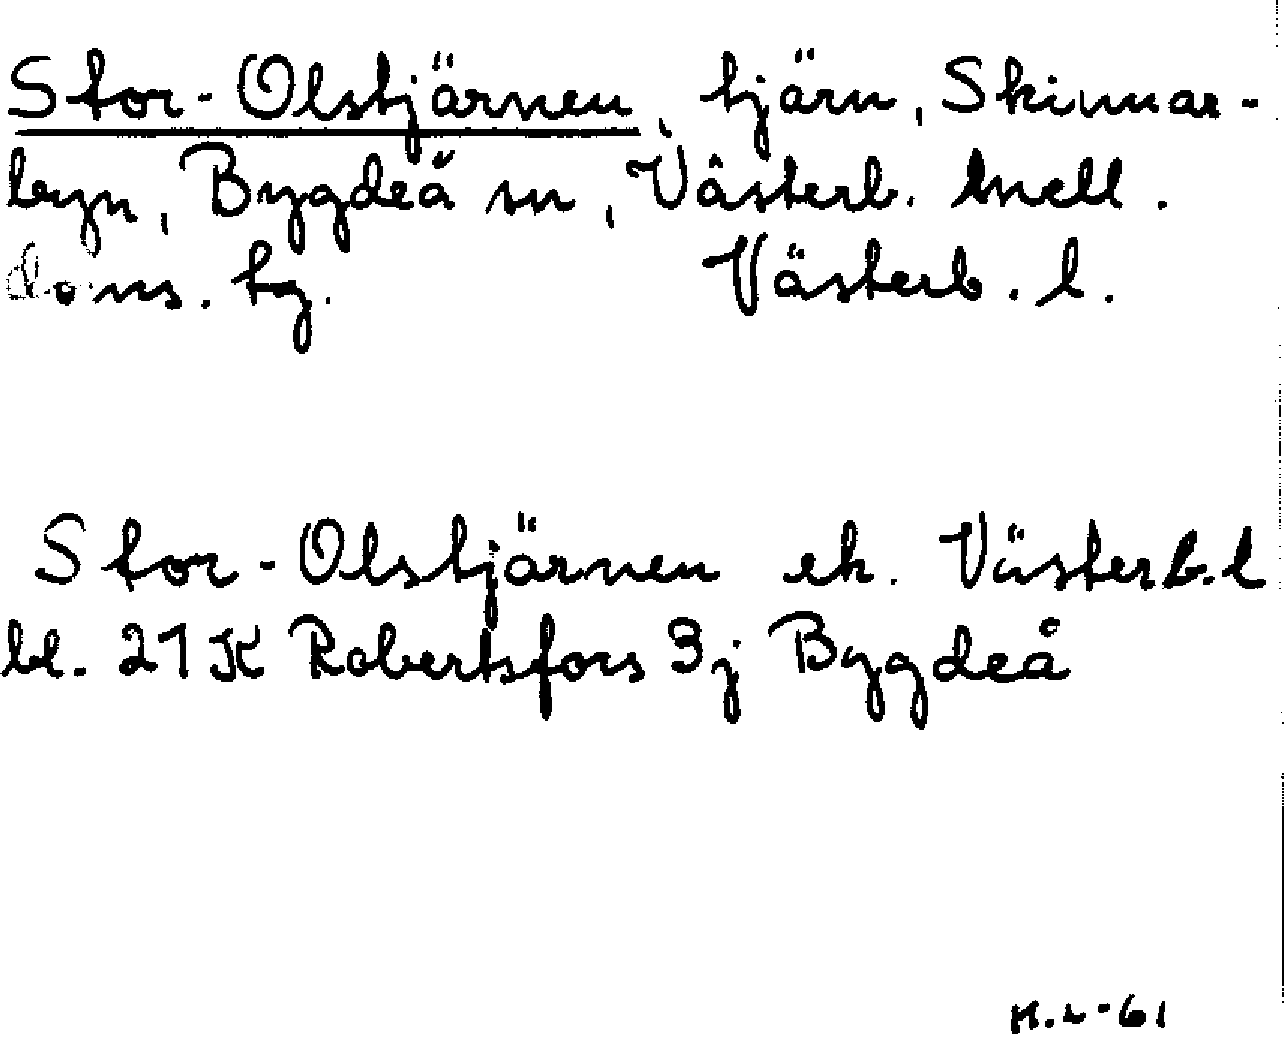 Stor-Olstjärnen, tjärn, Skinnar-
byn, Bygdeå sn, Västerb. mell.
doms. tg. Västerb. l.
Stor-Olstjärnen ek. Västerb. l
bl. 21K Robertsfors 3j Bygdeå
M.L-61